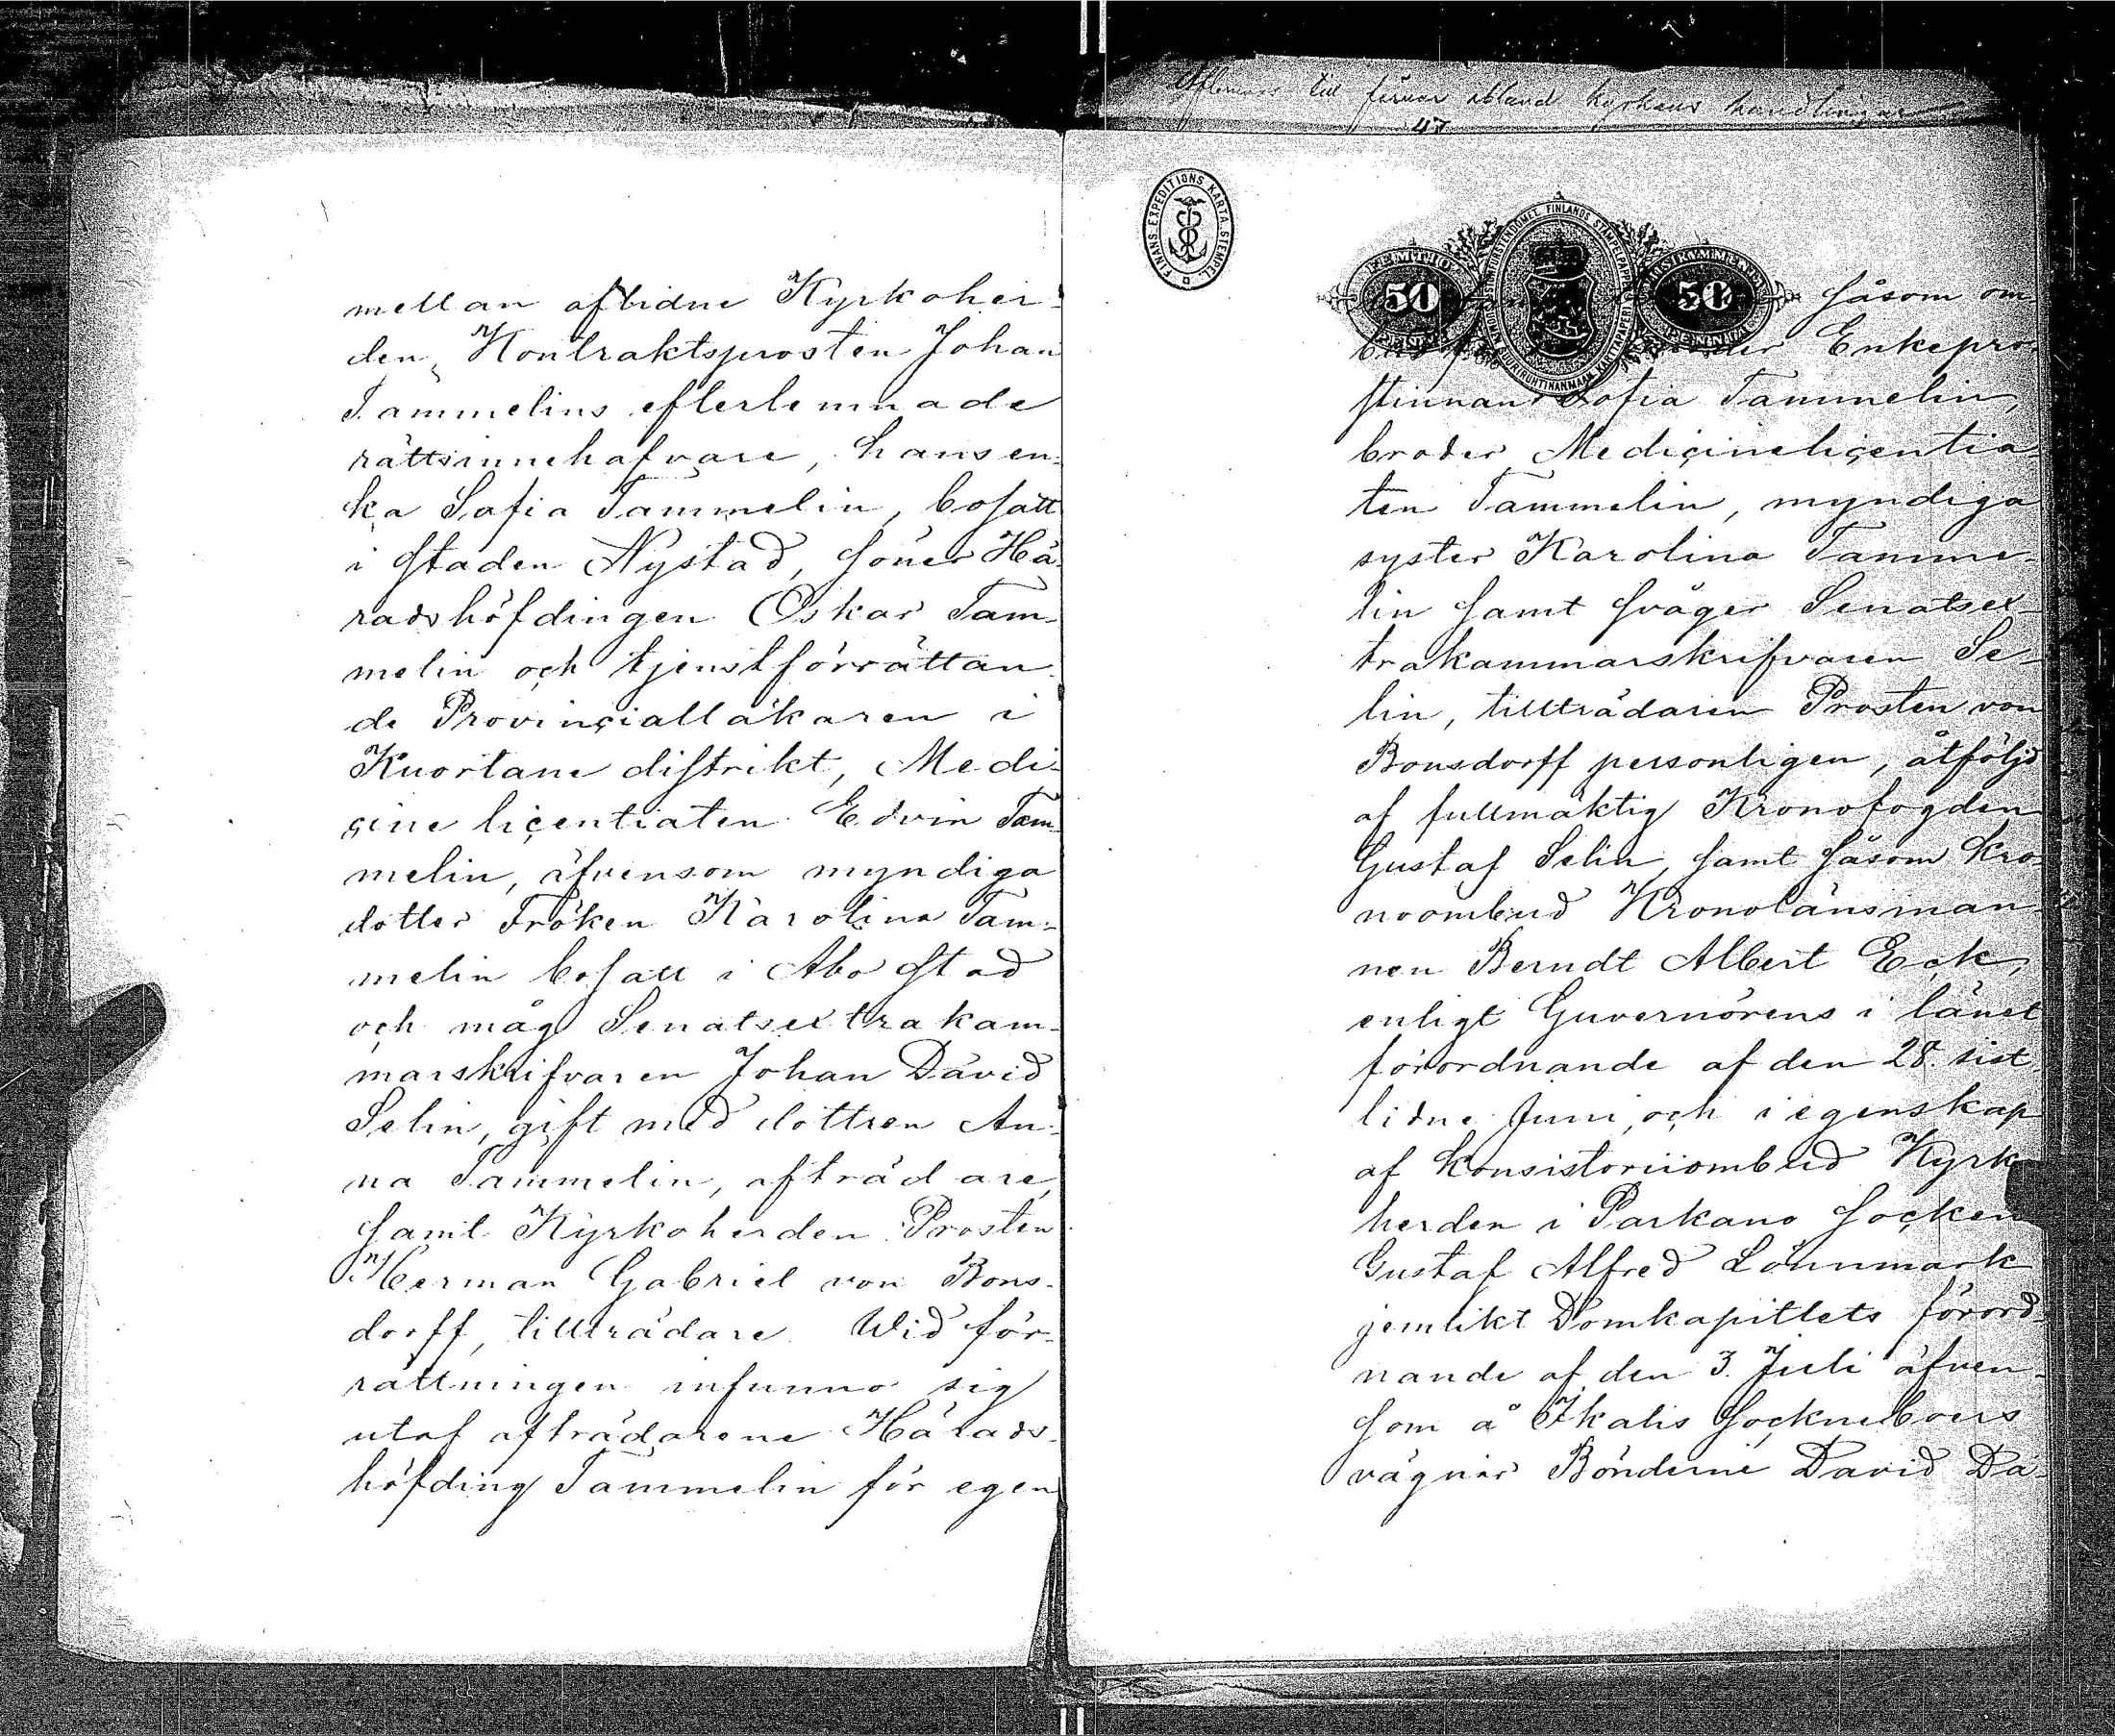 mellan aflidne Kyrkoher-
den, Kontraktsprosten Johan
Tammelins efterlemnade
rättsinnehafvare, hans en-
ka Sofia Tammelin, bosatt
i staden Nystad, söner Hä-
radshöfdingen Oskar Tam-
melin och tjenstförrättan-
de Provincialläkaren i
Kuortane distrikt, Medi-
cine licentiaten Edvin Tam-
melin, äfvensom myndiga
dotter Fröken Karolina Tam-
melin bosatt i Åbo stad
och måg Senatsextrakam-
marskrifvaren Johan David
Selin, gift med dottren An-
na Tammelin, afträdare,
samt Kyrkoherden Prosten
Herman Gabriel von Bons-
dorff, tillträdare. Wid för-
rättningen infunno sig
utaf afträdarene Härads-
höfding Tammelin för egen
till handlingar
47
FINANS EXPEDITIONS KARTA STEMPEL
FINLANDS
50 50
såsom om-
Enkepro-
stinnan Sofia Tammelin,
broder Medicinelicentia-
ten Tammelin, myndiga
syster Karolina Tamme-
lin samt svåger Senatsex-
trakammarskrifvaren Se-
lin, tillträdaren Prosten von
Bonsdorff personligen, åtföljd
af fullmäktig Kronofogden
Gustaf Selin, samt såsom kro-
noombud Kronolänsman-
nen Berndt Albert Eck,
enligt Guvernörens i länet
förordnande af den 28. sist-
lidne Juni, och i egenskap
af Konsistoriiombud Kyrko
herden i Parkano socken
Gustaf Alfred Lönnmark
jemlikt Domkapitlets förord-
nande af den 3. Juli äfven-
som å Ikalis Sockneboers
vägnar Bönderne David Da-